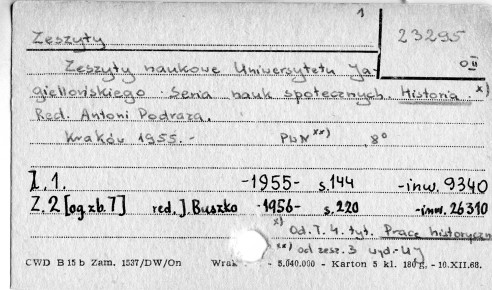 1
Zeszyty
23295
0 II
Zeszyty naukowe Uniwersytetu Ja-
giellońskiego. Seria nauk społecznych. Historia. x)
Red. Antoni Podraza.
Kraków 1955.- PWN xx) 8°
Z. 1. -1955- s. 144 -inw. 9340
Z. 2 [og. zb. 7] red. J. Buszko -1956- s. 220 -inw. 26310
x) Od. T. 4. tyt. Prace historyczn
xx) od zesz. 3 wyd. UJ
CWD B 15 b Zam. 1537/DW/On - 5.040.000 - Karton 5 kl. 180 g. - 10.XII.68.